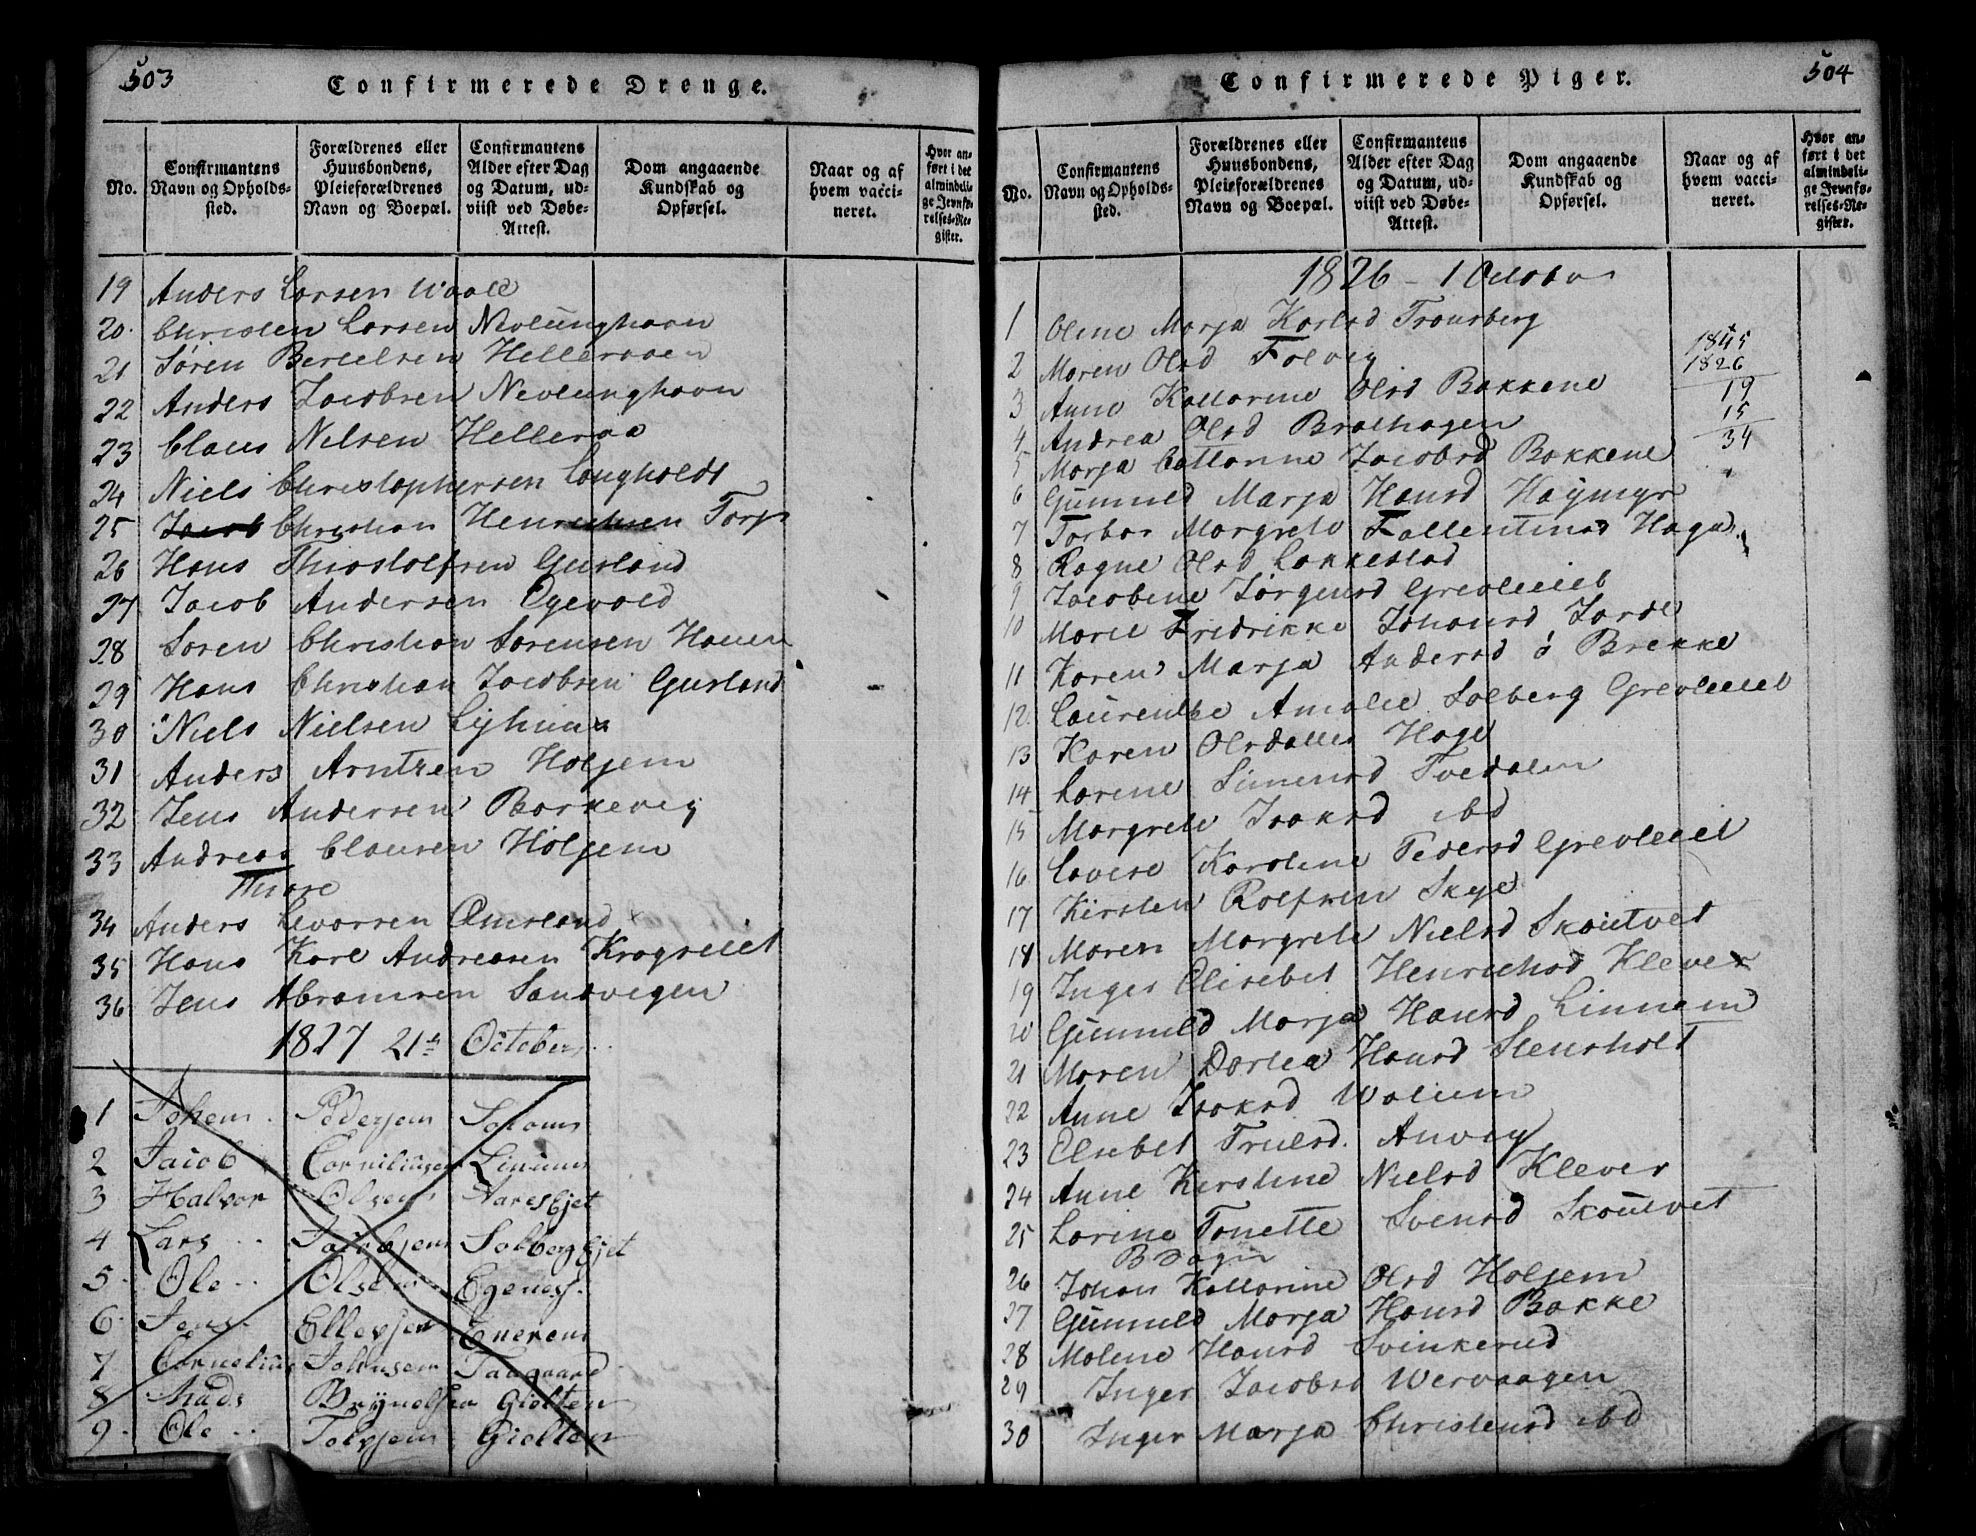 503
Confirmerede Drenge.
No.
Confirmantens Navn og Opholds-sted.
Forældrenes eller Huusbondens, Pleieforældrenes Navn og Boepæl.
Confirmantens Alder efter Dag og Datum, ud-viist ved Døbe-Attest.
Dom angaaende Kundskab og Opførsel.
Naar og af hvem vacci-neret.
Hvor an-ført i det almindeli-ge Jevnfø-relses-Re-gister.
19 Anders Larsen Waale
20. Christen Larsen Nevlunghavn
21 Søren Bertelsen Helleraaen
22 Anders Jacobsen Nevlunghavn
23 Claus Nilsen Helleraa
24 Niels Christophersen Langholdt
25 Jacob Christian Henrichsen Torp
26 Hans Thiostolfsen Gusland
27 Jacob Andersen Egevold
28 Søren Christian Sørensen Hauen
29 Hans Christian Jacobsen Gusland
30 Niels Nielsen
31 Anders Arntzen Holjem
32 Jens Andersen Barkevig
33 Andreas Clausen Holjem
Thiøse
34 Anders Levorsen Omsland
35 Hans Karl Andreasen Krogreiet
36 Jens Abramsen Sandvigen
1827 21de October
1 Johem Pedersen
2 Jacob Cornilius Linum
3 Halvor Olsen
4 Lars Jacobsen Solberg Ejet
5 Ole Olsen Egenes
6 Jens Ellevsen
7 Cornelius Johnsen
8 Mads Brynelsen Giølten
9. Ole Tolvsen Giølten
504
Confirmerede Piger.
No.
Confirmantens Navn og Opholds-sted.
Forældrenes eller Huusbondens, Pleieforældrenes Navn og Boepæl.
Confirmantens Alder efter Dag og Datum, ud-viist ved Døbe-Attest.
Dom angaaende Kundskab og Opførsel.
Naar og af hvem vacci-neret.
Hvor an-ført i det almindeli-ge Jevnfø-relses-Re-gister.
1826 - 1 Octobr
1 Oline Marja Karlsd Fronsberg
2 Maren Olsd Folvig
1845
1826
19
15
34
3 Anne Kattarine Olsd Bakkene
4 Andrea Olsd Brathagen
5 Marja Cattarine Jacobsd Bakkene
6 Gunnild Marja Hansd Høymyr
7 Torbor Margrete Fallentinsd Haga
8 Ragne Olsd Lakkestad
9 Jacobine Jørgensd Grevleiet
10 Marie Fridrikke Johansd Jorde
11 Karen Marja Andersd ø Brekke
12. Laurentse Amalie Solberg Grevleiet
13 Karen Olsdatter Hage
14 Lorene Simensd Tvedalen
15 Margrete Isaksd ibd
16 Lovise Karoline Pedersd Grevleiet
17 Kirsten Rolfsen Skye
18 Maren Margrete Nielsd Skoutvet
19 Inger Elisebet Henrichsd Klever
20 Gunnild Marja Hansd Linnem
21 Maren Dortea Hansd Stensholt
22 Anne Isaksd Waliem
23 Elsebet Truelsd. Anvig
24 Anne Kirstine Nielsd Klever
25 Lorine Tonette Svensd Skoutvet
26 Johan Kattarine Olsd Holjem
27 Gunnild Marja Hansd Bakke
28 Malene Hansd Svinkerud
29 Inger Jacobsd Wervaagen
30 Inger Marja Christensd ibd